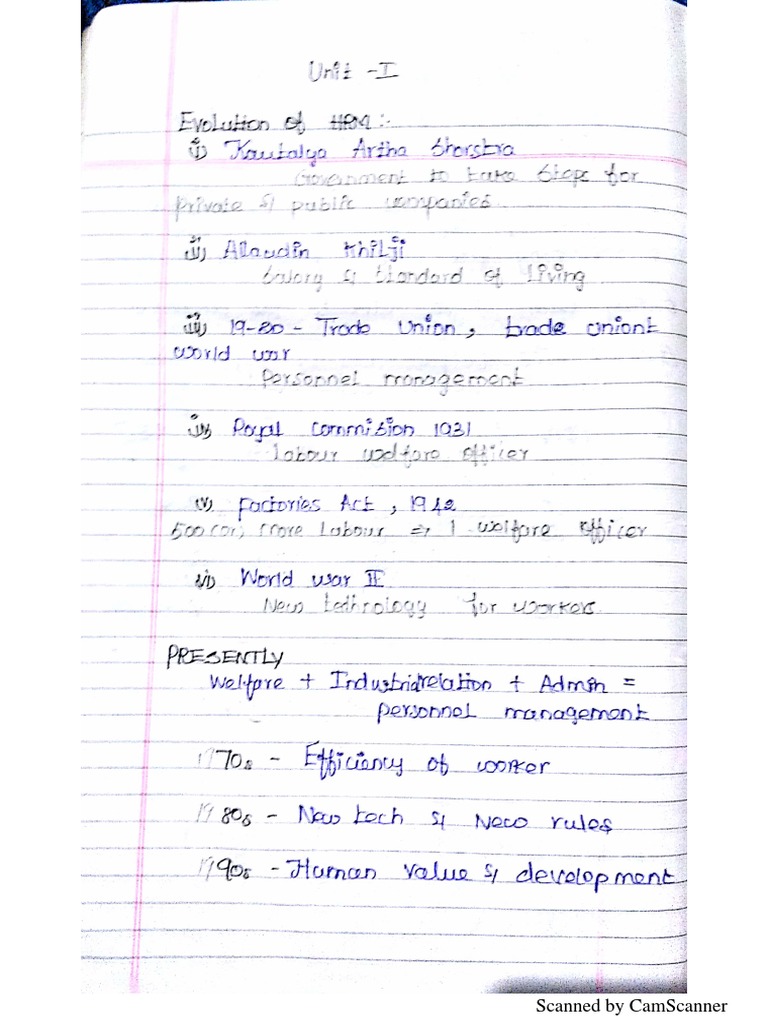 Unit - I
Evolution of HRM :-
i) Kautalya Artha Shorstra
Government to take steps for
private & public companies.
ii) Allaudin Khilji
Salary & Standard of living
iii) 19-20 - Trade Union, trade uniont
world war
Personnel management
iv) Royal Commision 1931
Labour welfare officer
(v) Factories Act, 1942
500 (or) more Labour => 1 welfare officer
vi) World war II
New technology for workers
PRESENTLY
Welfare + Industrial relation + Admin =
personnel management
1970s - Efficiency of worker
1980s - New tech & New rules
1990s - Human value & development
Scanned by CamScanner